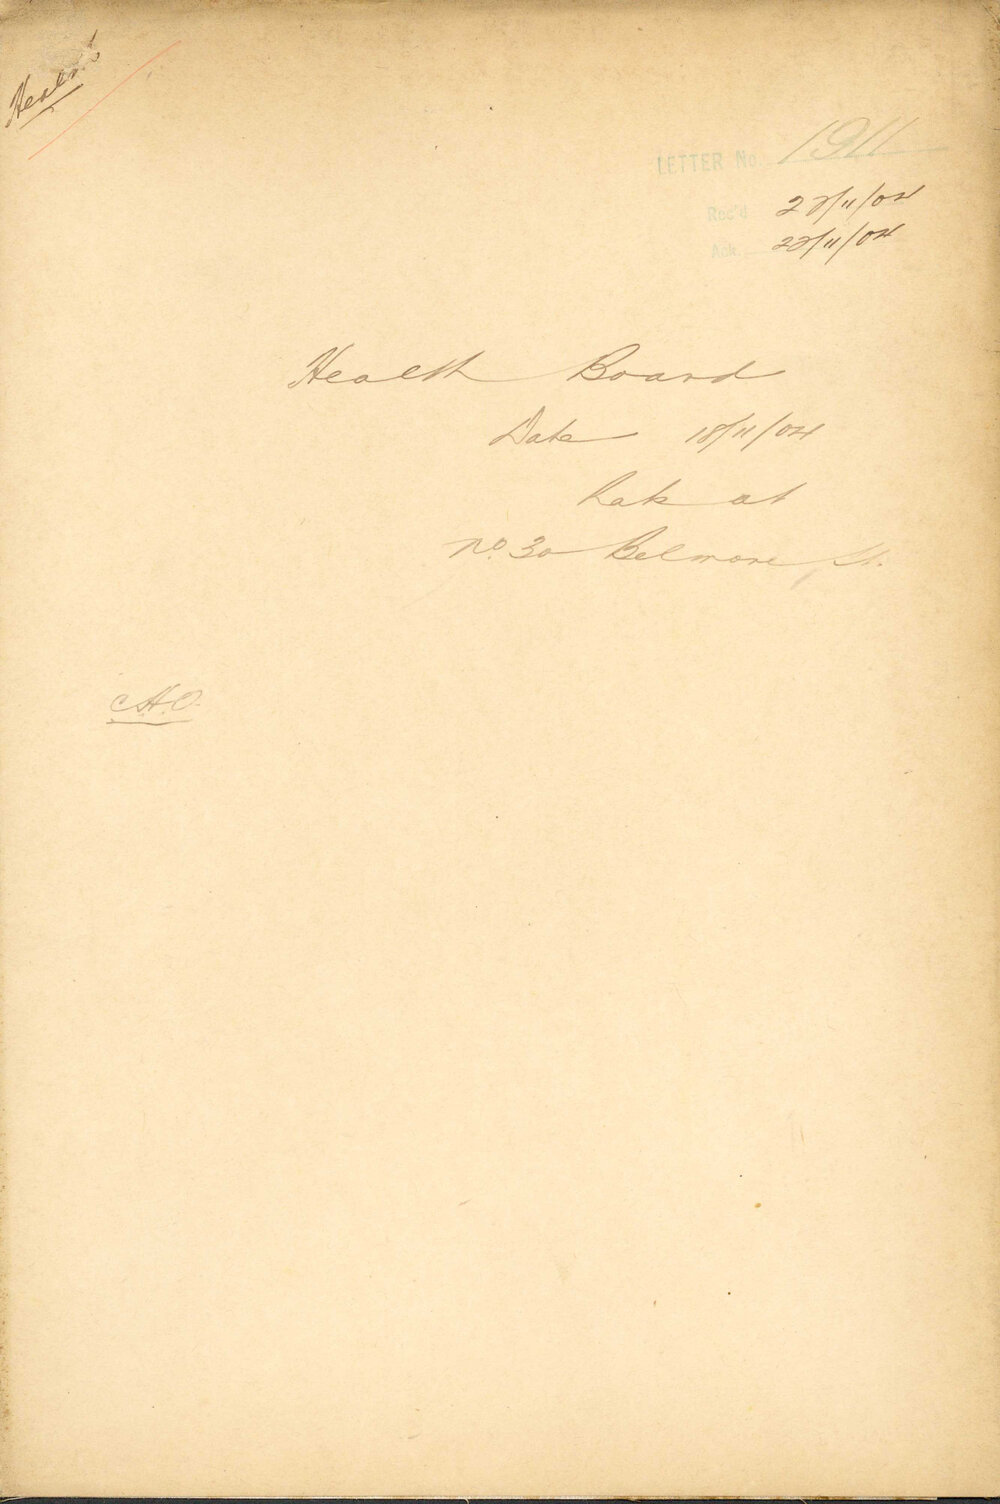 Health
LETTER No. 1911
Rec'd 22/11/04
Ack. 22/11/04
Health Board
Date 18/11/04
at
No. 30 Belmore St.
C.H.O.